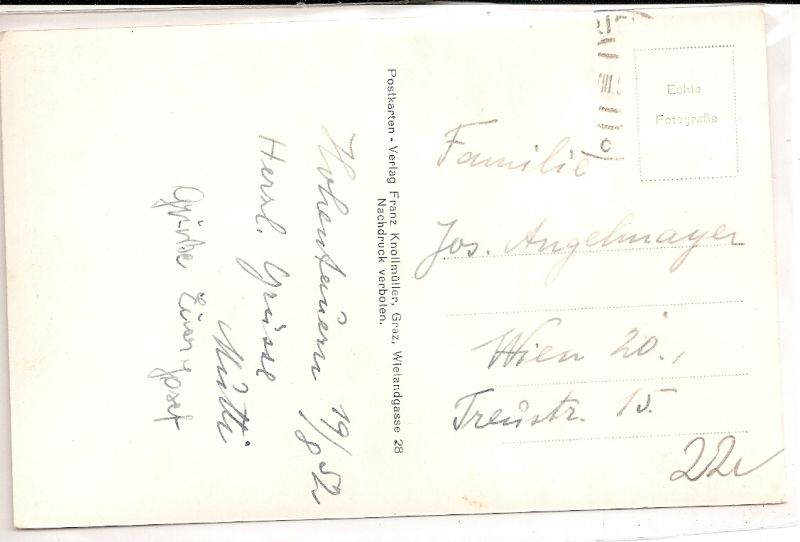 Hohentauern 19/8 52
Herzl. Grüsse
Mutti
Grüße Euer Josef
Postkarten - Verlag Franz Knollmüller, Graz, Wielandgasse 28
Nachdruck verboten.
Echte
Fotografie
Familie
Jos. Angelmayer
Wien 20.,
Treustr. 15